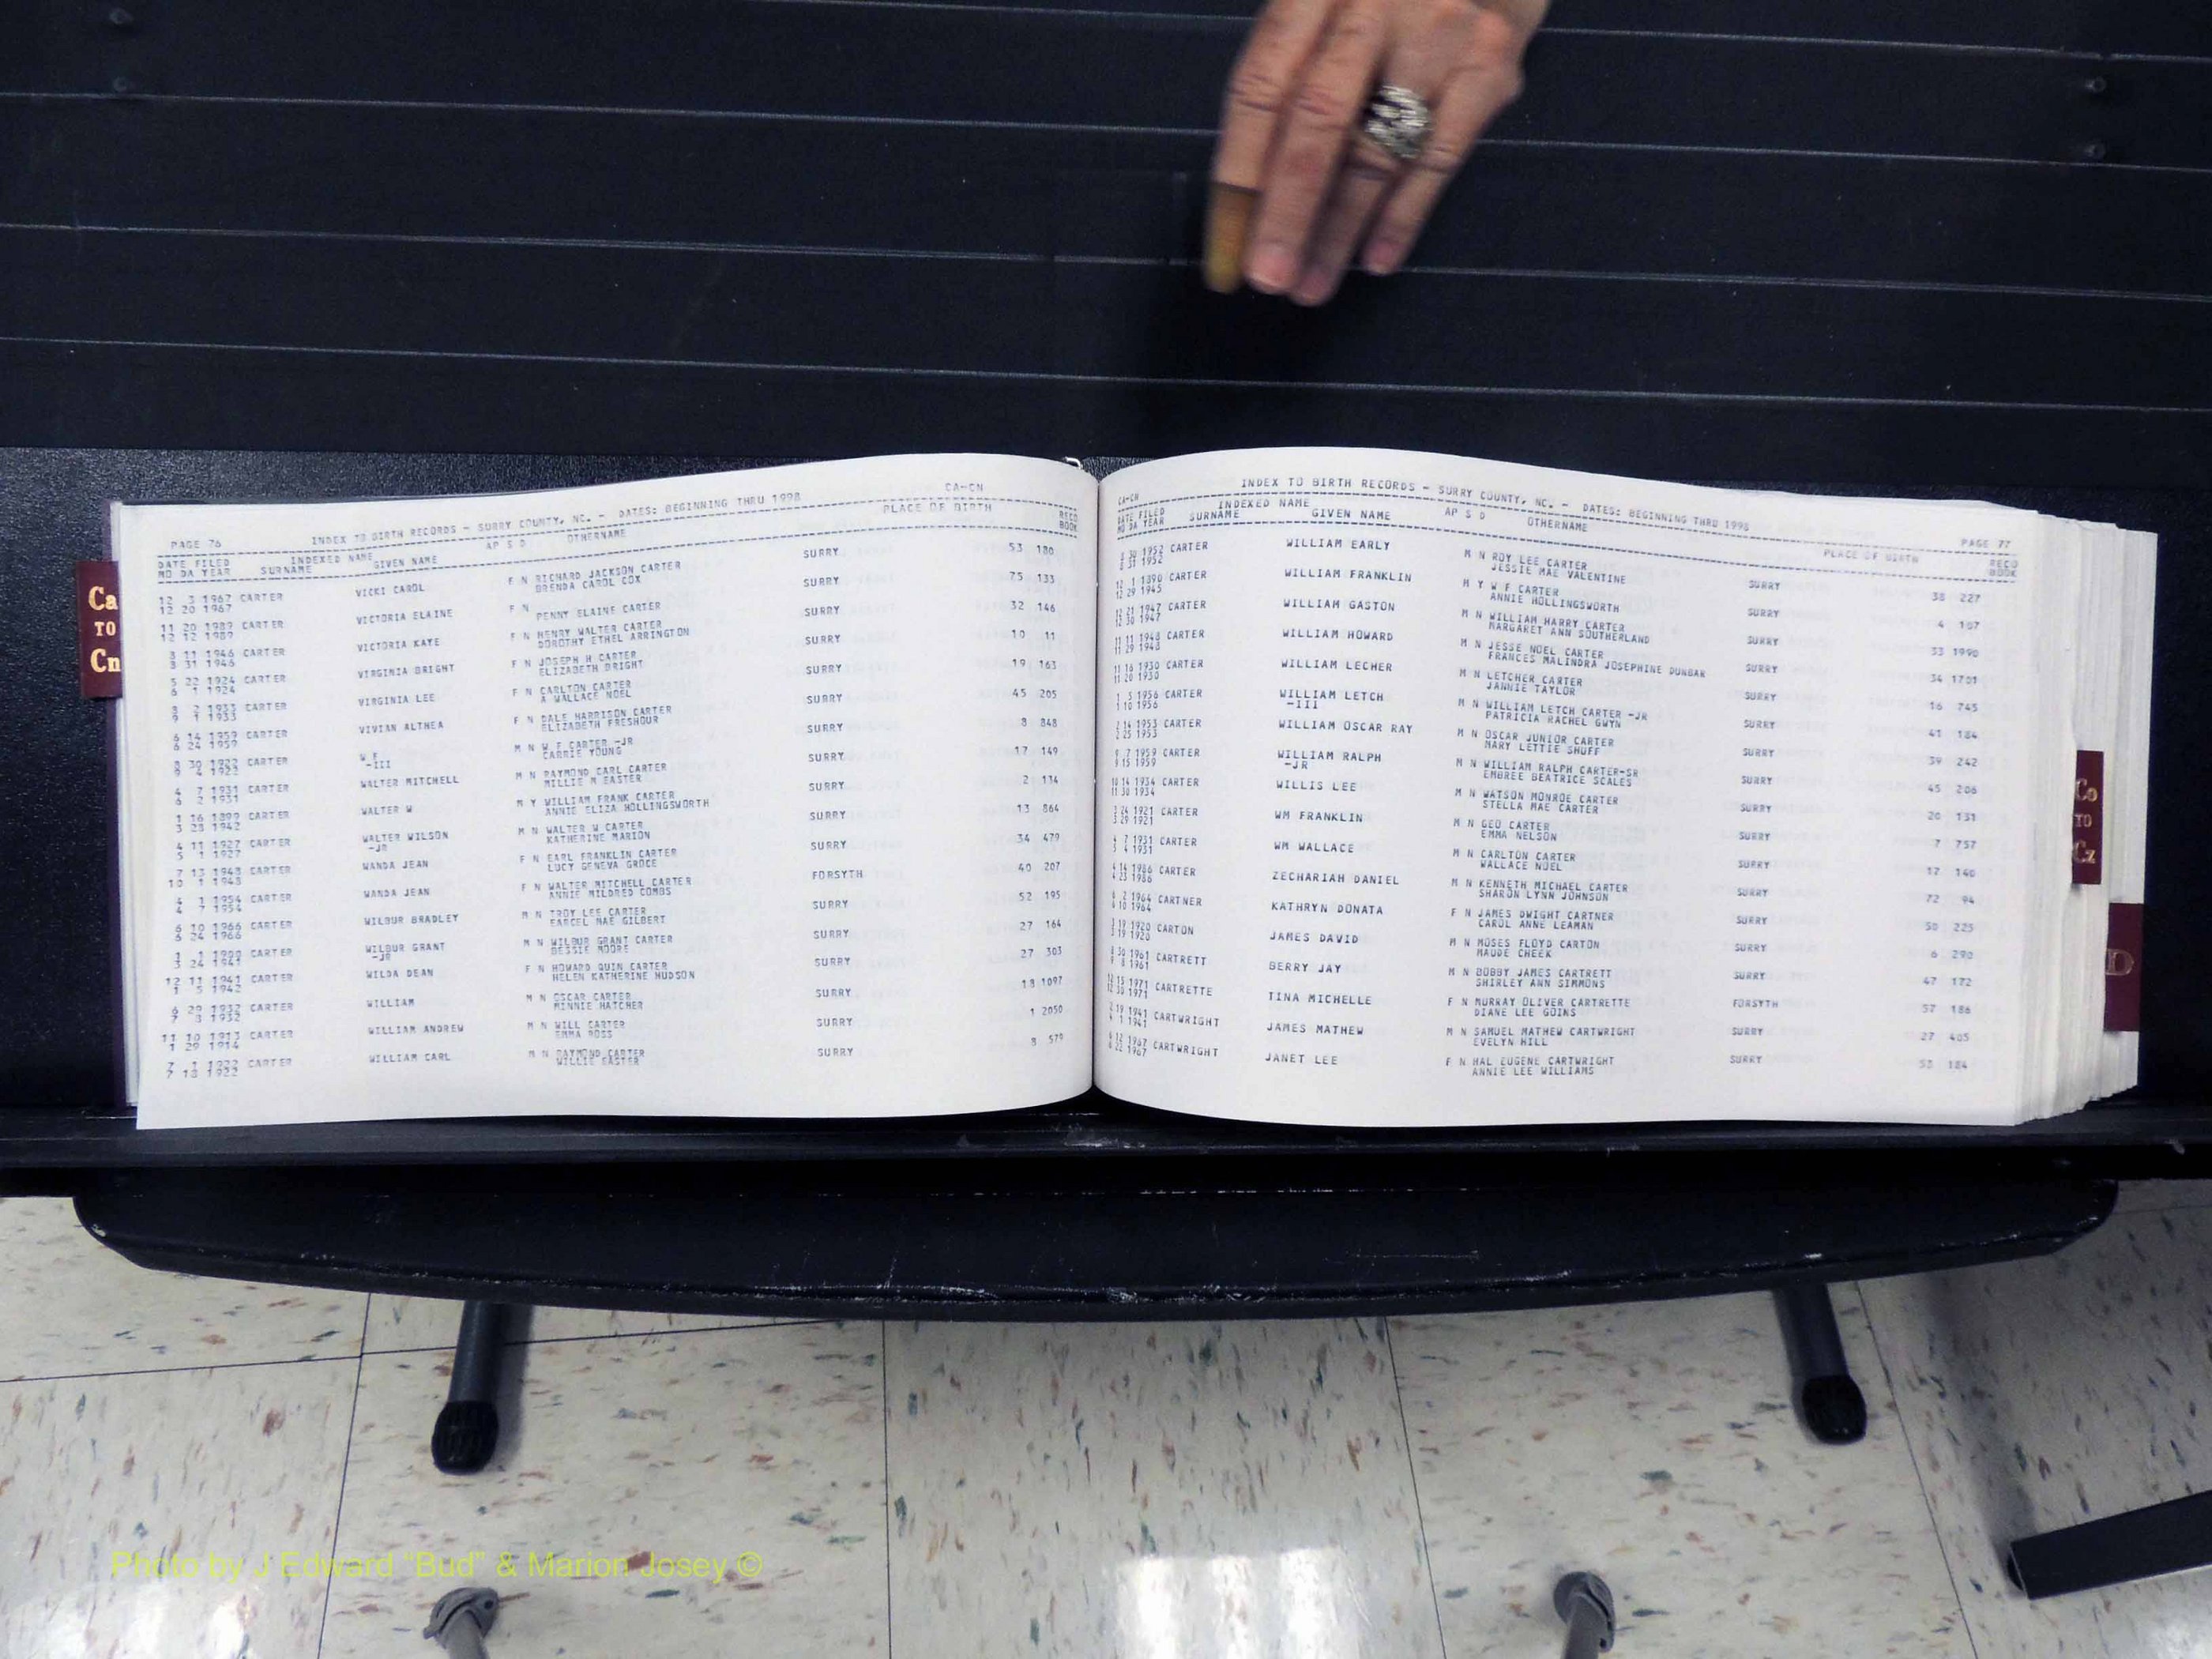 Ca
TO
Cn
PAGE 76 INDEX TO BIRTH RECORDS - SURRY COUNTY, NC. - DATES: BEGINNING THRU 1998 CA-CN
DATE FILED INDEXED NAME AP S D OTHERNAME PLACE OF BIRTH RECO
MO DA YEAR SURNAME GIVEN NAME BOOK
12 3 1967 CARTER VICKI CAROL F N RICHARD JACKSON CARTER SURRY 53 180
12 20 1967 BRENDA CAROL COX
11 20 1989 CARTER VICTORIA ELAINE F N SURRY 75 133
12 12 1989 PENNY ELAINE CARTER
8 11 1946 CARTER VICTORIA KAYE F N HENRY WALTER CARTER SURRY 32 146
8 31 1946 DOROTHY ETHEL ARRINGTON
5 22 1924 CARTER VIRGINIA BRIGHT F N JOSEPH H CARTER SURRY 10 11
6 1 1924 ELIZABETH BRIGHT
8 2 1933 CARTER VIRGINIA LEE F N CARLTON CARTER SURRY 19 163
9 1 1933 A WALLACE NOEL
6 14 1959 CARTER VIVIAN ALTHEA F N DALE HARRISON CARTER SURRY 45 205
6 24 1959 ELIZABETH FRESHOUR
8 30 1922 CARTER W F M N W F CARTER -JR SURRY 8 848
9 4 1922 -III CARRIE YOUNG
4 7 1931 CARTER WALTER MITCHELL M N RAYMOND CARL CARTER SURRY 17 149
6 2 1931 MILLIE M EASTER
1 16 1899 CARTER WALTER W M Y WILLIAM FRANK CARTER SURRY 2 134
3 28 1942 ANNIE ELIZA HOLLINGSWORTH
4 11 1927 CARTER WALTER WILSON M N WALTER W CARTER SURRY 13 864
5 1 1927 -JR KATHERINE MARION
7 13 1948 CARTER WANDA JEAN F N EARL FRANKLIN CARTER SURRY 34 479
10 1 1948 LUCY GENEVA GROCE
4 1 1954 CARTER WANDA JEAN F N WALTER MITCHELL CARTER FORSYTH 40 207
4 7 1954 ANNIE MILDRED COMBS
6 10 1966 CARTER WILBUR BRADLEY M N TROY LEE CARTER SURRY 52 195
6 24 1966 EARCEL MAE GILBERT
1 1 1900 CARTER WILBUR GRANT M N WILBUR GRANT CARTER SURRY 27 164
3 24 1941 -JR BESSIE MOORE
12 11 1941 CARTER WILDA DEAN F N HOWARD QUIN CARTER SURRY 27 303
1 5 1942 HELEN KATHERINE HUDSON
6 29 1932 CARTER WILLIAM M N OSCAR CARTER SURRY 18 1097
7 8 1932 MINNIE HATCHER
11 10 1913 CARTER WILLIAM ANDREW M N WILL CARTER SURRY 1 2050
1 29 1914 EMMA ROSS
7 1 1922 CARTER WILLIAM CARL M N RAYMOND CARTER SURRY 8 579
7 18 1922 WILLIE EASTER
CA-CN INDEX TO BIRTH RECORDS - SURRY COUNTY, NC. - DATES: BEGINNING THRU 1998 PAGE 77
DATE FILED INDEXED NAME AP S D OTHERNAME PLACE OF BIRTH RECO
MO DA YEAR SURNAME GIVEN NAME BOOK
8 30 1952 CARTER WILLIAM EARLY M N ROY LEE CARTER SURRY 38 227
8 31 1952 JESSIE MAE VALENTINE
12 1 1890 CARTER WILLIAM FRANKLIN M Y W F CARTER SURRY 4 107
12 29 1945 ANNIE HOLLINGSWORTH
12 21 1947 CARTER WILLIAM GASTON M N WILLIAM HARRY CARTER SURRY 33 1990
12 30 1947 MARGARET ANN SOUTHERLAND
11 11 1948 CARTER WILLIAM HOWARD M N JESSE NOEL CARTER SURRY 34 1701
11 29 1948 FRANCES MALINDRA JOSEPHINE DUNBAR
11 16 1930 CARTER WILLIAM LECHER M N LETCHER CARTER SURRY 16 745
11 20 1930 JANNIE TAYLOR
1 3 1956 CARTER WILLIAM LETCH M N WILLIAM LETCH CARTER -JR SURRY 41 184
1 10 1956 -III PATRICIA RACHEL GWYN
2 14 1953 CARTER WILLIAM OSCAR RAY M N OSCAR JUNIOR CARTER SURRY 39 242
2 25 1953 MARY LETTIE SHUFF
9 7 1959 CARTER WILLIAM RALPH M N WILLIAM RALPH CARTER-SR SURRY 45 206
9 15 1959 -JR EMBREE BEATRICE SCALES
10 14 1934 CARTER WILLIS LEE M N WATSON MONROE CARTER SURRY 20 131
11 30 1934 STELLA MAE CARTER
3 24 1921 CARTER WM FRANKLIN M N GEO CARTER SURRY 7 757
3 29 1921 EMMA NELSON
4 7 1931 CARTER WM WALLACE M N CARLTON CARTER SURRY 17 140
5 4 1931 WALLACE NOEL
4 14 1986 CARTER ZECHARIAH DANIEL M N KENNETH MICHAEL CARTER SURRY 72 94
4 23 1986 SHARON LYNN JOHNSON
6 2 1964 CARTNER KATHRYN DONATA F N JAMES DWIGHT CARTNER SURRY 50 225
6 10 1964 CAROL ANNE LEAMAN
3 19 1920 CARTON JAMES DAVID M N MOSES FLOYD CARTON SURRY 6 290
3 19 1920 MAUDE CHEEK
8 30 1961 CARTRETT BERRY JAY M N BOBBY JAMES CARTRETT SURRY 47 172
9 8 1961 SHIRLEY ANN SIMMONS
12 15 1971 CARTRETTE TINA MICHELLE F N MURRAY OLIVER CARTRETTE FORSYTH 57 186
12 30 1971 DIANE LEE GOINS
2 19 1941 CARTWRIGHT JAMES MATHEW M N SAMUEL MATHEW CARTWRIGHT SURRY 27 405
4 1 1941 EVELYN HILL
6 12 1967 CARTWRIGHT JANET LEE F N HAL EUGENE CARTWRIGHT SURRY 53 184
6 22 1967 ANNIE LEE WILLIAMS
Co
TO
Cz
D
Photo by J Edward "Bud" & Marion Josey ©